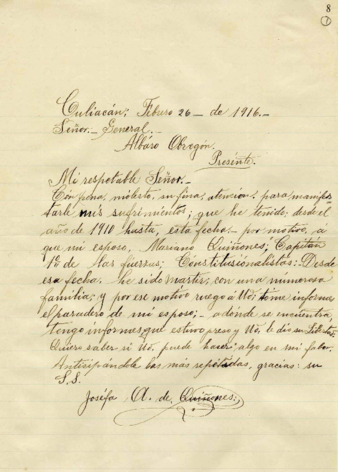 8
1
Culiacán: Febero 26 - de 1916.-
Señor.- General.-
Albáro Obregón.
Presénte.-
Mi respetable Señor.-
Con pena, molesto, su fina, atencion, para manifes
tarle mis sufrimientos; que he tenido, desde el
año de 1910 hasta, esta fecha.- por motivo, á
que mi esposo, Mariano Quiñones; Capitan
1º de las fuersas; Constitusionalistas:- Desde
esa fecha. he sido martir, con una numerosa
familia; y por ese motivo ruego á Ud; tome informe
el paradero de mi esposo;- adonde se encuentra,
tengo informes, que estuvo preso y Ud. le dio su
Quiero saber si Ud. puede haser algo en mi fabor.
Anticipandole las más repetidas, gracias: su
S.S.
Joséfa A. de Quiñones.